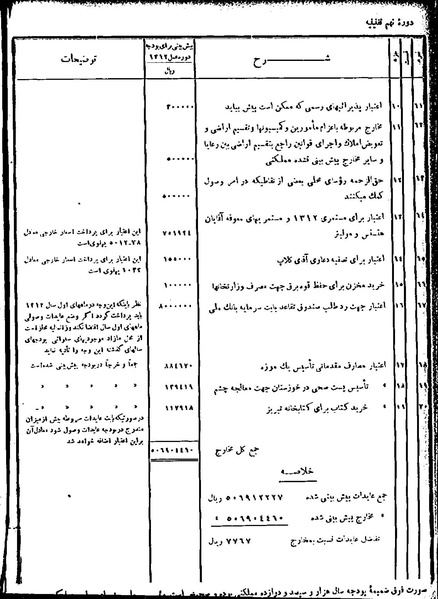 دورهٔ نهم تقنینیه
شرح
پیش بینی برای بودجه
دوره عمل ۱۳۱۲
ریال
توضیحات
۱۱ ۱۰ اعتبار پذیرائیهای رسمی که ممکن است پیش بیاید ۲۰۰۰۰۰
۱۲ ۱۱ مخارج مربوطه باعزام مأمورین و کمیسیونها و تقسیم اراضی و
تعویض املاک و اجرای قوانین راجع بتقسیم اراضی بین رعایا
و سایر مخارج پیش بینی نشده مملکتی ۵۰۰۰۰۰
۱۳ ۱۲ حق‌الزحمه رؤسای محلی بعضی از نقاطیکه در امر وصول
کمک میکنند ۵۰۰۰۰۰
۱۴ ۱۳ اعتبار برای مستمری ۱۳۱۲ و مستمریهای معوقه آقایان
و هوایز ۷۵۱۹۲۴
این اعتبار برای پرداخت اسعار خارجی معادل
۵۰۱۲٫۲۸ پهلوی است
۱۵ ۱۴ اعتبار برای تصفیه دعاوی آقای کلاپ ۱۵۵۰۰۰
این اعتبار برای پرداخت اسعار خارجی معادل
پهلوی است
۱۶ ۱۵ خرید مخزن برای حفظ قوه برق جهت مصرف وزارتخانها ۱۵۰۰۰۰
۱۷ ۱۶ اعتبار جهت رد طلب صندوق تقاعد بابت سرمایه بانک ملی ۸۰۰۰۰۰۰
نظر باینکه این وجه در ماههای اول سال ۱۳۱۲
باید پرداخت گردد اگر وضع عایدات وصولی
ماههای اول سال اقتضا نکند وزارت مالیه مجاز است
از محل مازاد موجودیهای سنواتی بودجهای
سالهای گذشته این وجه را تأدیه نماید
۱۸ ۱۷ اعتبار مصارف مقدماتی تأسیس یک موزه ۸۸۴۱۷۰
جمعاً و خرجاً در بودجه پیش بینی شده است
۱۹ ۱۸ » تأسیس پست صحی در خوزستان جهت معالجه چشم ۱۳۹۴۱۹
» » » »
۲۰ ۱۹ » خرید کتاب برای کتابخانه تبریز ۱۱۷۹۱۸
» » » »
در صورتیکه بابت عایدات مربوطه بیش از میزان
مندرج در بودجه عایدات وصول شود معادل آن
بر این اعتبار اضافه خواهد شد
جمع کل مخارج ۵۰۶۹۰۴۴۶۰
خلاصه
جمع عایدات پیش بینی شده ۵۰۶۹۱۲۲۲۷ ریال
» مخارج پیش بینی شده ۵۰۶۹۰۴۴۶۰ »
تفاضل عایدات نسبت بمخارج ۷۷۶۷ ریال
صورت فوق ضمیمهٔ بودجه سال هزار و سیصد و دوازده مملکتی بوده و صحیح است